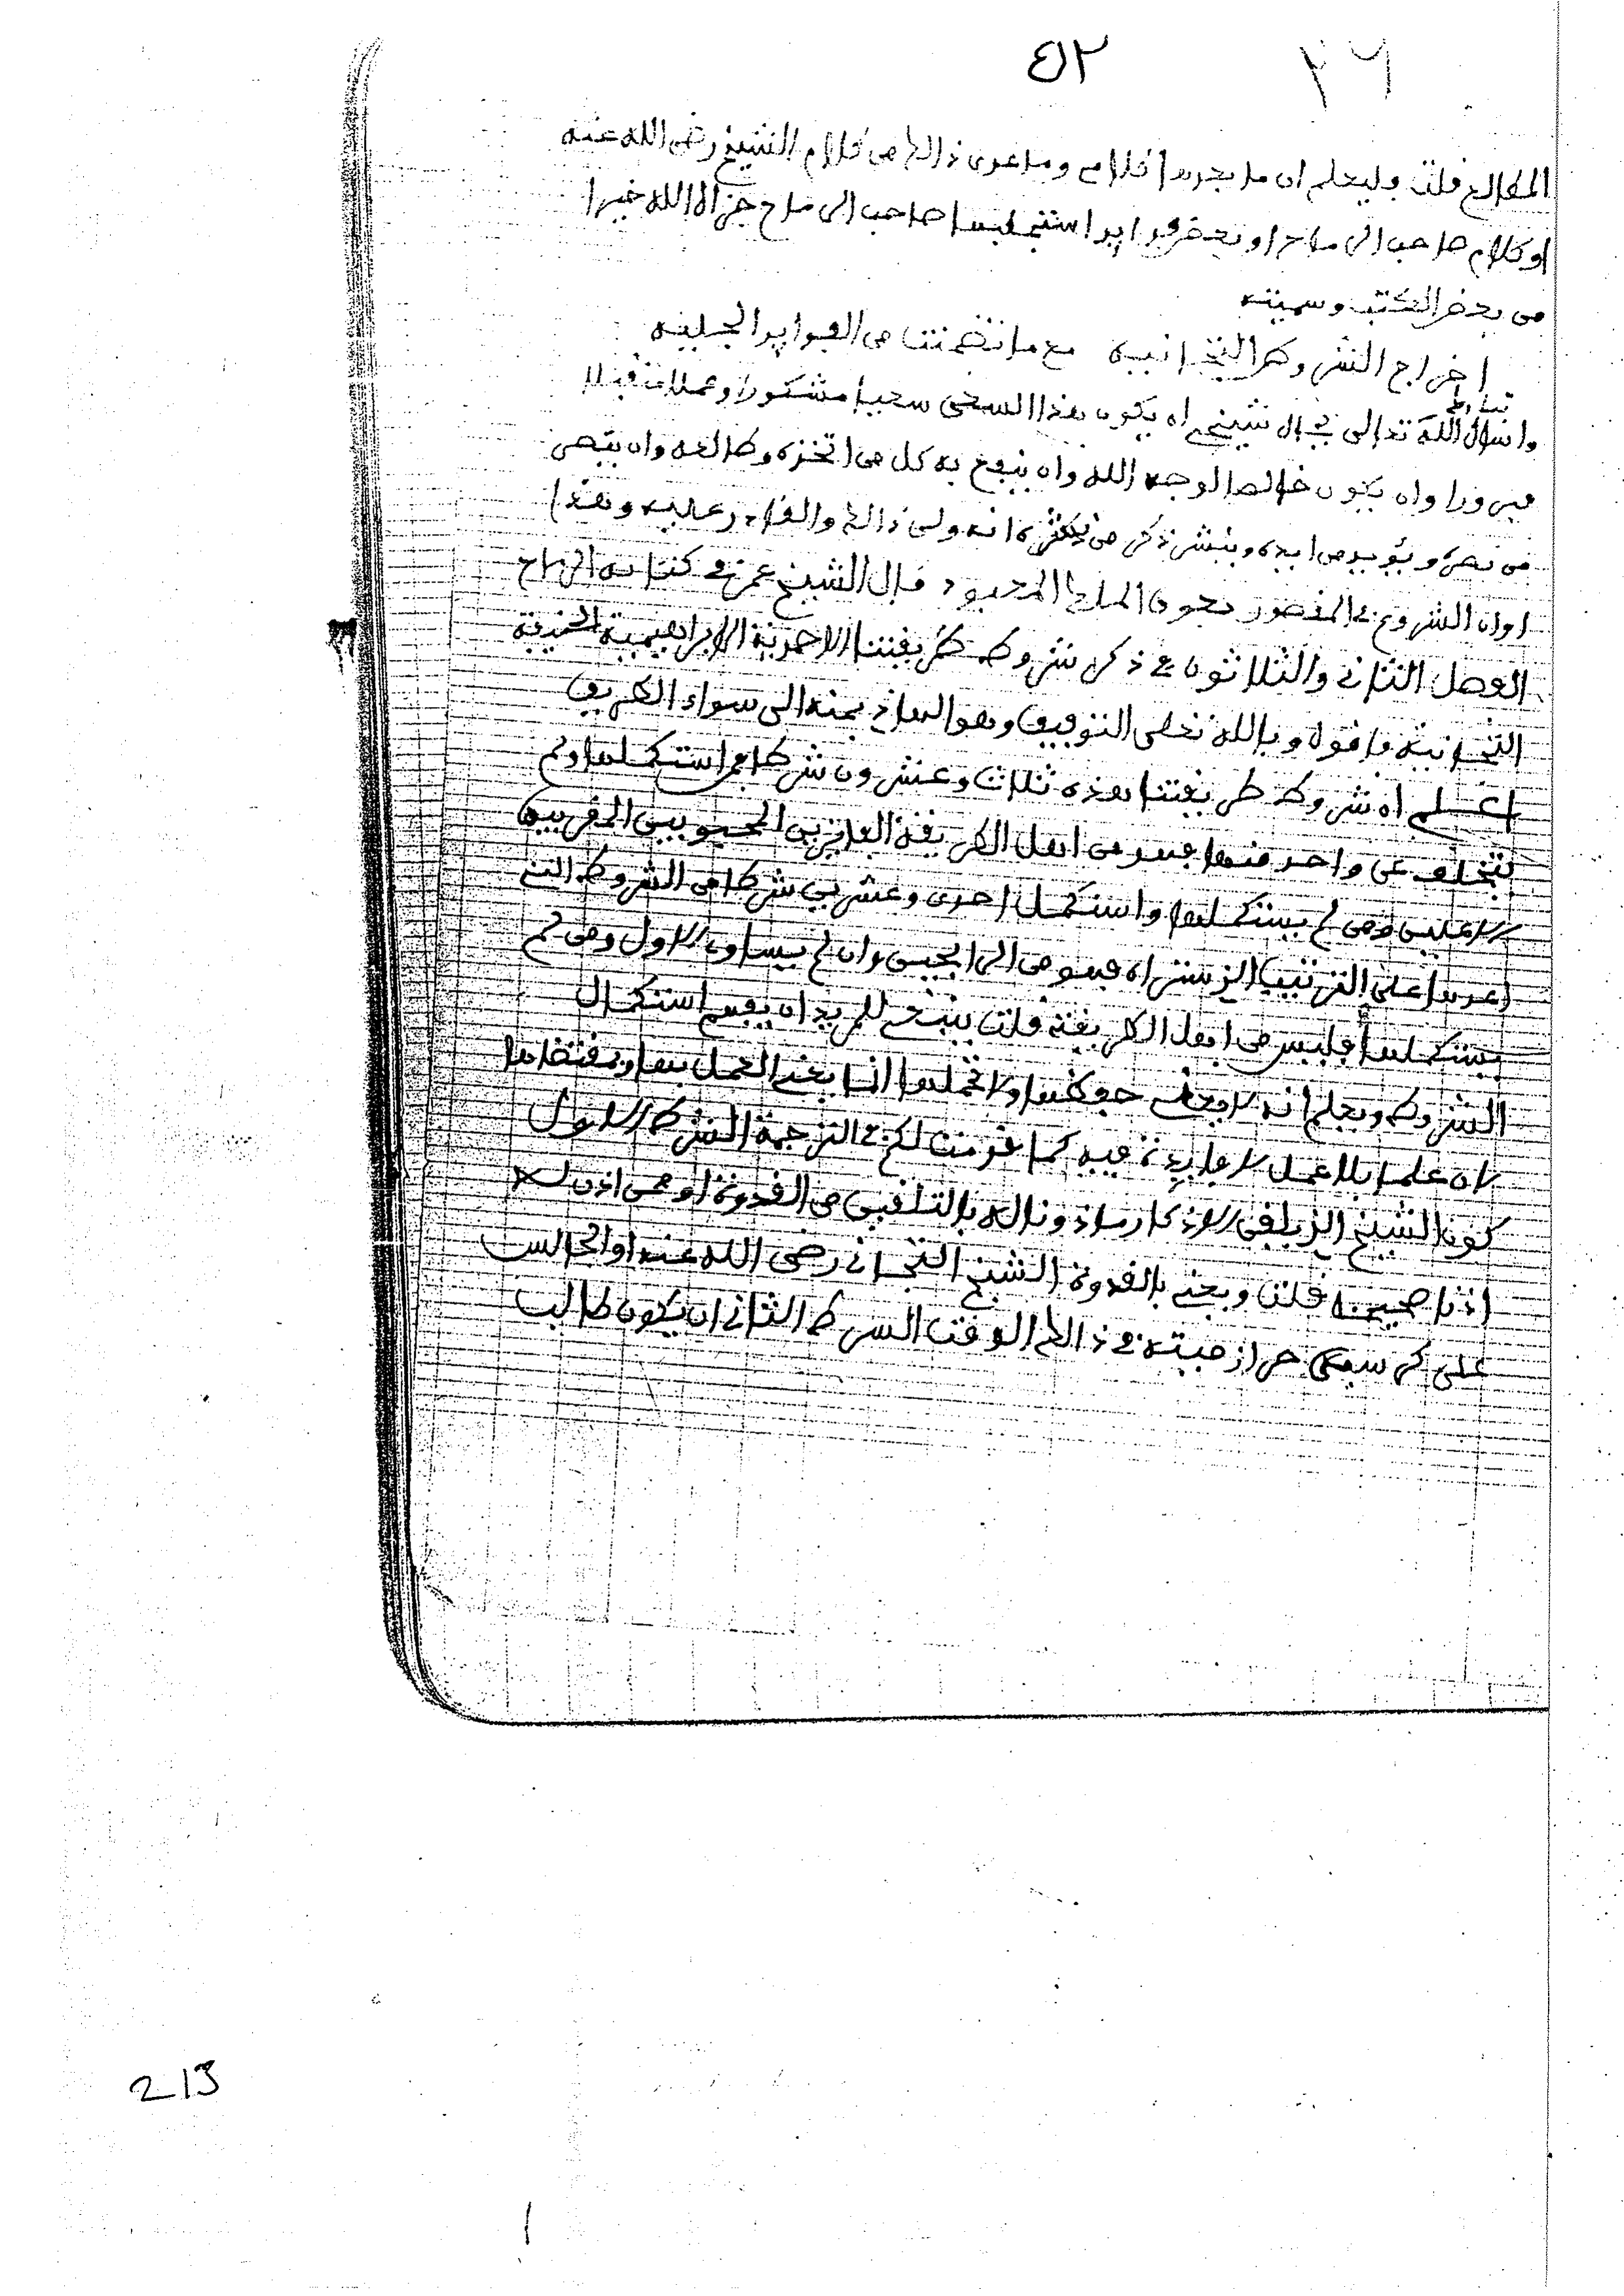 ٤١٢ ٢٦
المطالع قلت وليعلم ان ما بعد هذا كلامي وما عدى ذالك من كلام الشيخ رضى الله عنه
او كلام صاحب الرماح او بعض فوايد استجلبها صاحب الرماح جزاه الله خيرا
من بعض الكتب وسميته
اخراج الشروط التجانيه مع ما تضمنت من الفوايد الجليه
واسأل الله تعالى بجاه شيخي ان يكون هذا السعى سعيا مشكورا وعملا متقبلا
مبرورا وان يكون خالصا لوجه الله وان ينفع به كل من اتخذه وطالعه وان ينصر
من نصره ويؤيد من ايده وينشر ذكر من يكثره انه ولى ذالك والقادر عليه وهذا
اوان الشروع في المقصور بعون الملك المعبود قال الشيخ عمر في كتابه الرماح
الفصل الثاني والثلاثون في ذكر شروط طريقتنا الاحمدية الابراهيمية الحنيفية
التجانية فاقول وبالله تعلى التوفيق وهو الهاذ بمنه الى سواء الطريق
اعلم ان شروط طريقتنا هذه ثلاث وعشرون شرطا فمن استكملها ولم
يتخلف عن واحد منها فهو من اهل الطريقة الفايزين المحبوبين المقربين
الاعليين ومن لم يستكملها واستكمل احدى وعشرين شرطا من الشروط التي
اعدها على الترتيب الذ ستراه فهو من الرابحين وان لم يساوى الاول ومن لم
يستكملها فليس من اهل الطريقة قلت ينبغي للمريد ان يفهم استكمال
الشروط ويعلم انه لا يعني حفظها ولا تحملها انما يعني العمل بها وبمقتضاها
لان علما بلا عمل لا فايدة فيه كما قدمت لكم في الترجمة الشرط الاول
كون الشيخ الذ يلقن الاذكار ماذونا له بالتلقين من القدوة او ممن اذن له
اذنا صحيحا قلت ويعني بالقدوة الشيخ التجاني رضى الله عنه او الجالس
على كرسيه من ازمنته في ذالك الوقت الشرط الثاني ان يكون طالب
213